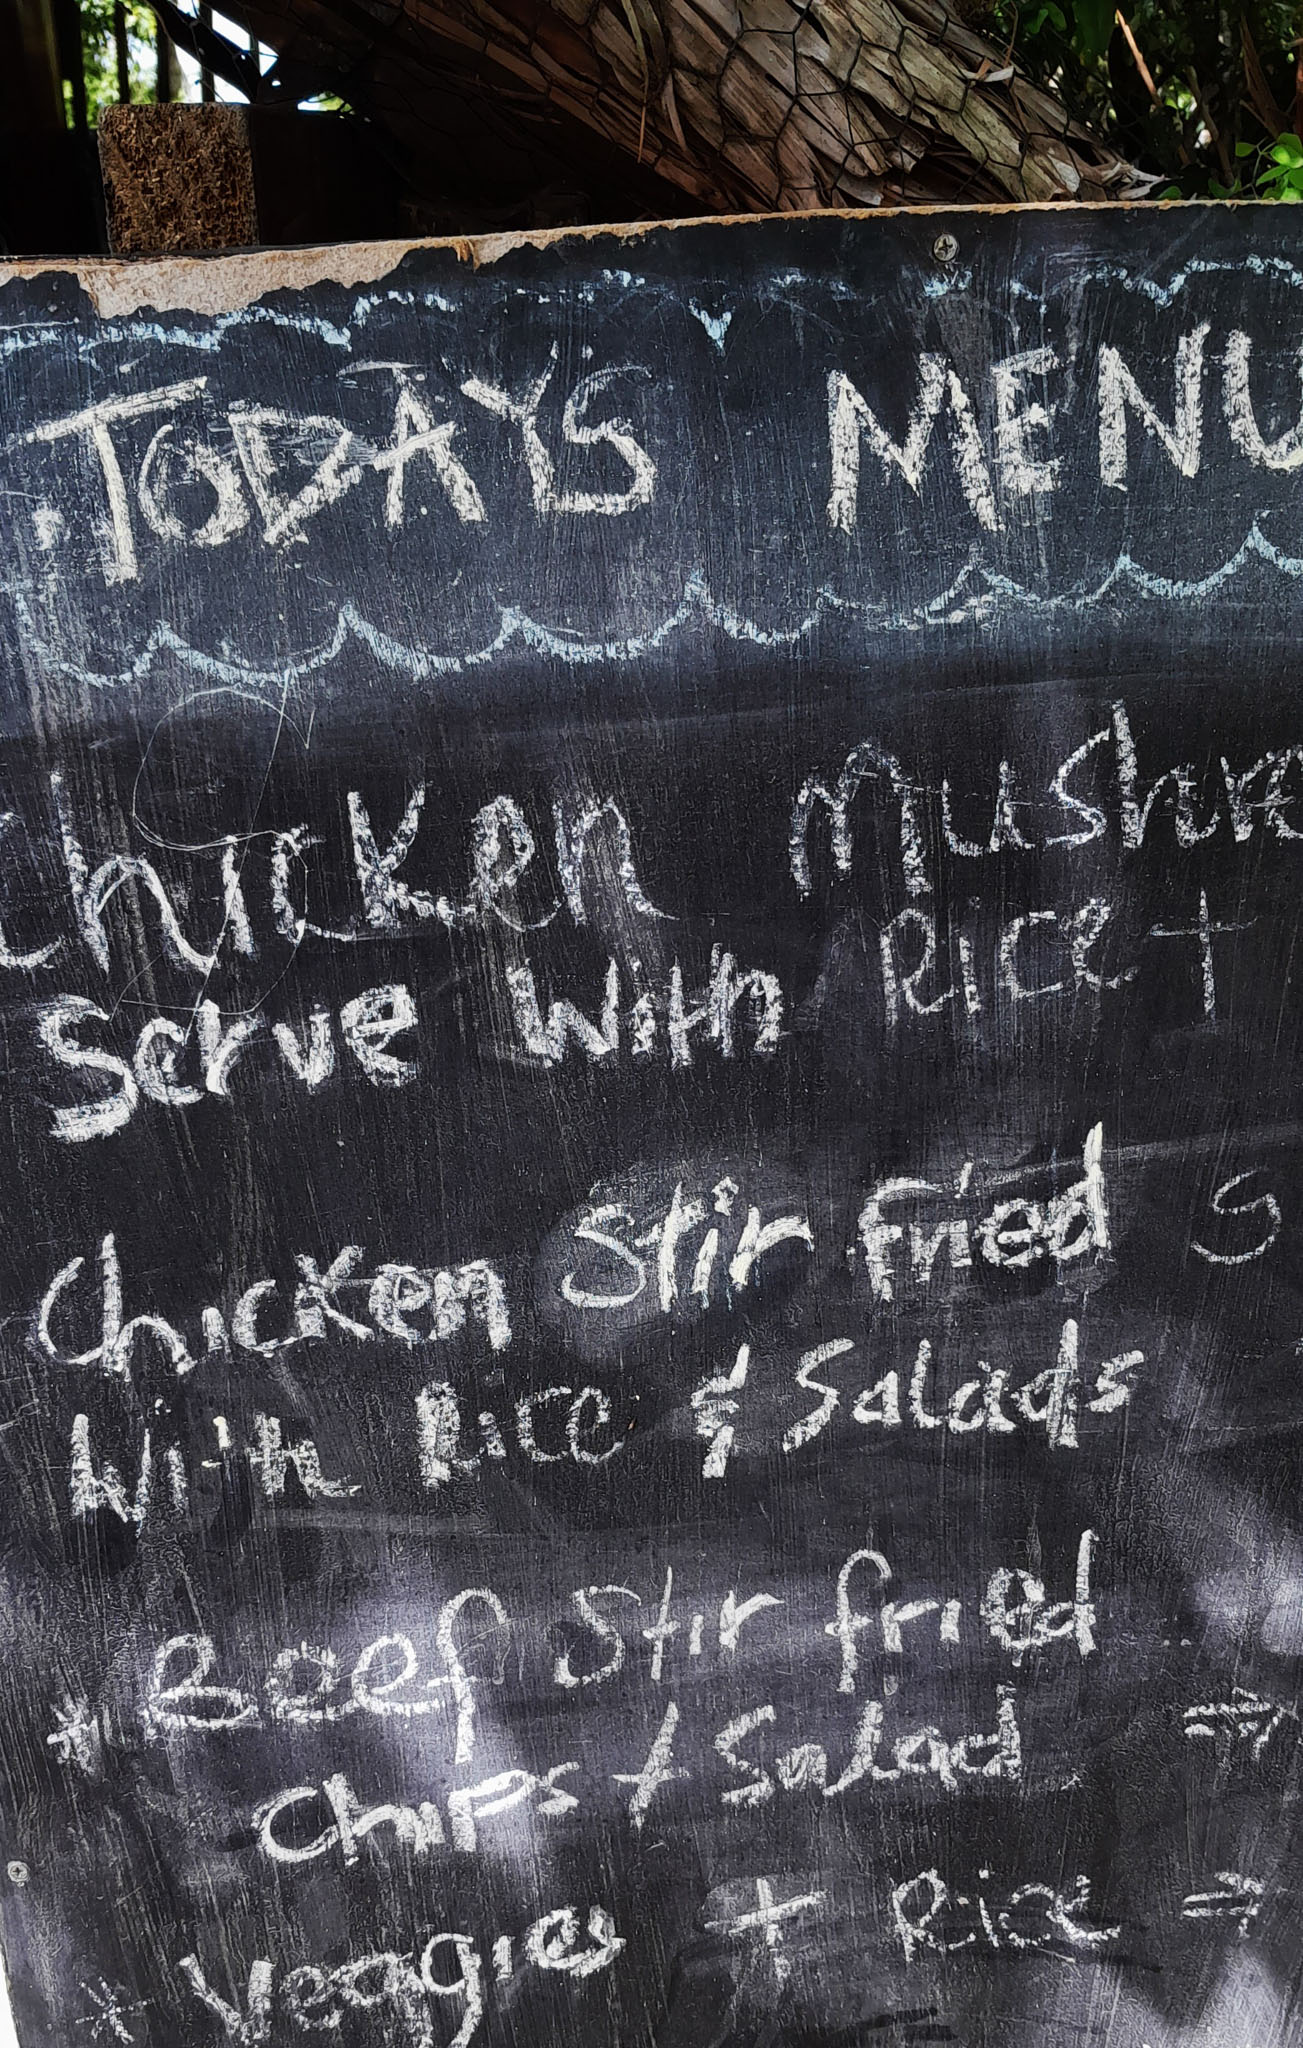 TODAYS MENU
Chicken Mushro
Serve With Rice +
Chicken Stir Fried S
With Rice & Salads
* Beef Stir fried
Chips + Salad ⇒
* Veggies + Rice ⇒